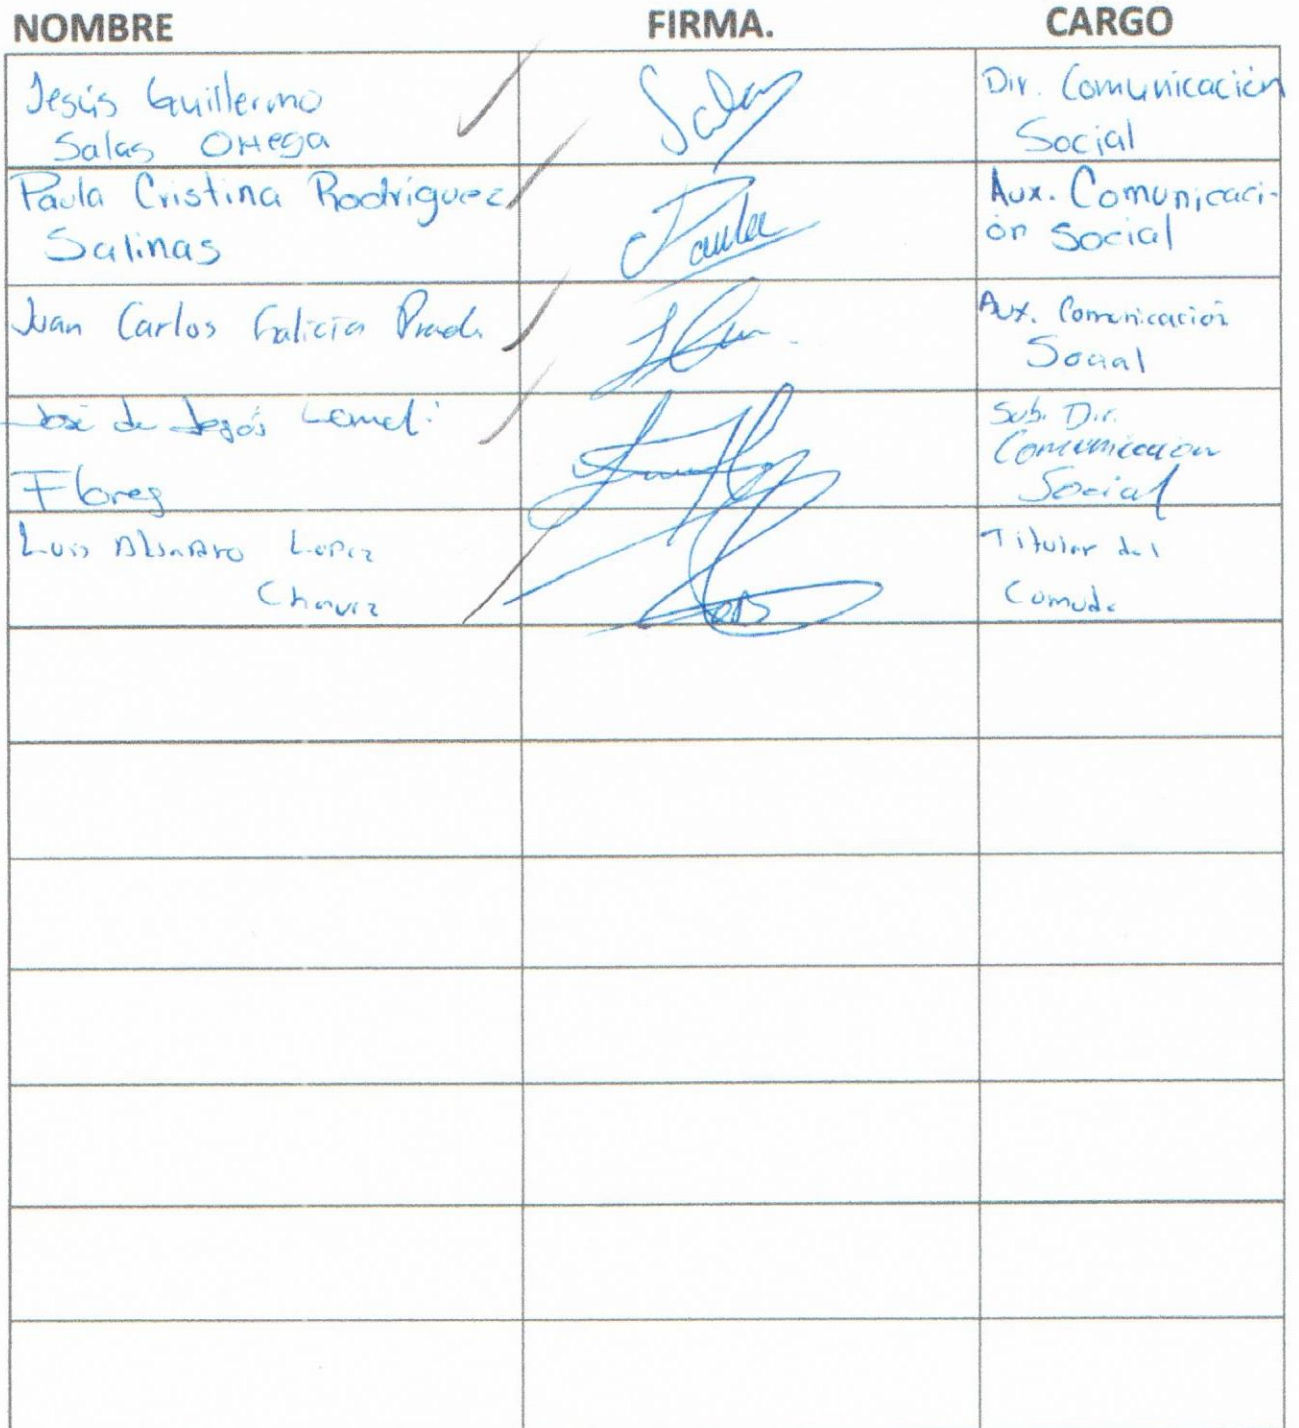 NOMBRE FIRMA. CARGO
Jesús Guillermo
Salas Ortega
Salas
Dir. Comunicación
Social
Paula Cristina Rodríguez
Salinas
Paula
Aux. Comunicaci-
ón Social
Juan Carlos Galicia
Aux. Comunicación
Social
José de Jesús
Flores
Sub. Dir.
Comunicacion
Social
Luis Lopez
Chavez
Titular del